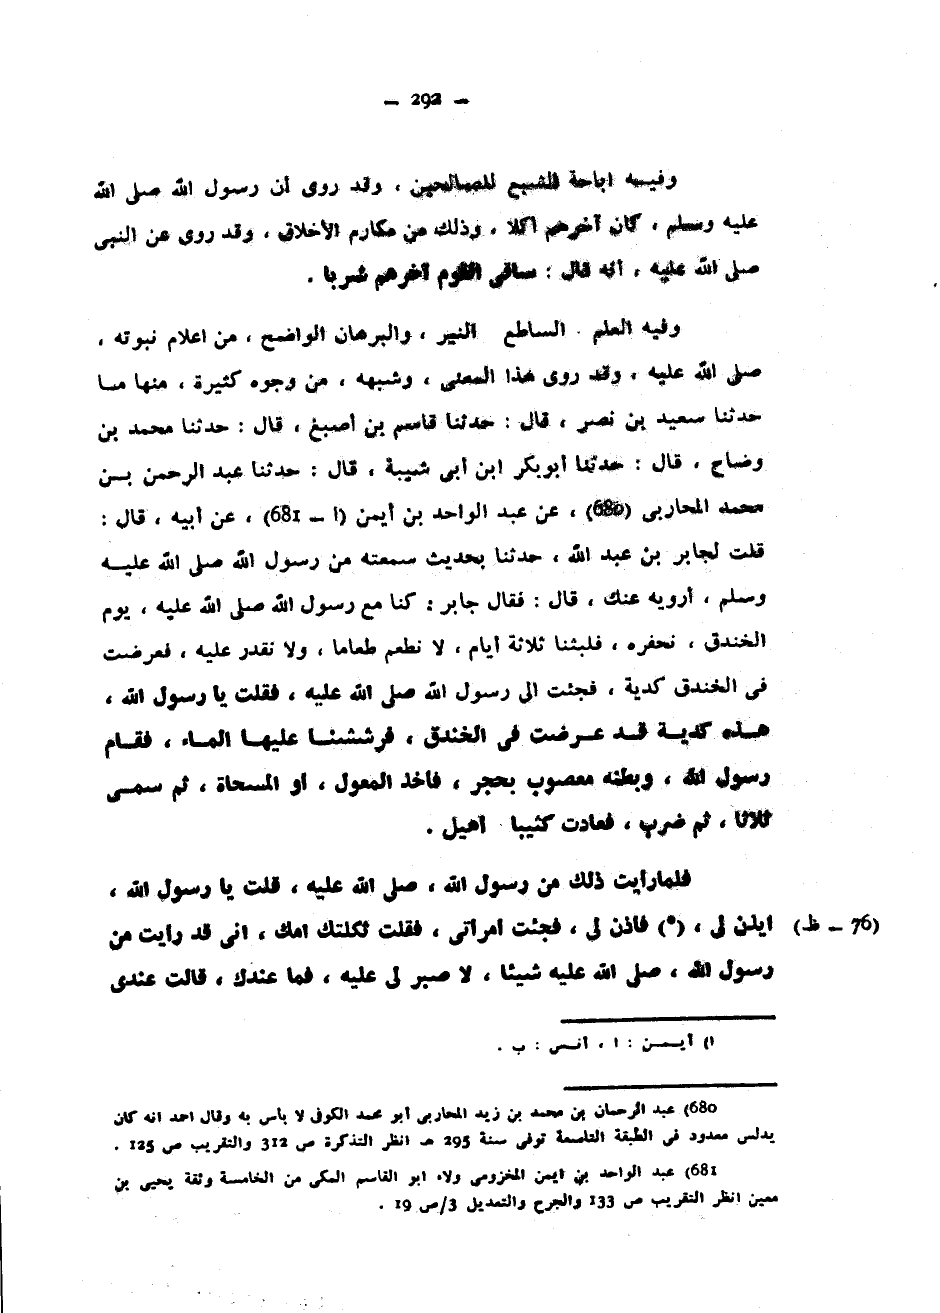 — 292 —
وفيه اباحة الشبع للصالحين ، وقد روى أن رسول الله صلى الله
عليه وسلم ، كان آخرهم اكلا ، وذلك من مكارم الأخلاق ، وقد روى عن النبى
صلى الله عليه ، أنه قال : ساقى القوم آخرهم شربا .
وفيه العلم الساطع النير ، والبرهان الواضح ، من اعلام نبوته ،
صلى الله عليه ، وقد روى هذا المعنى ، وشبهه ، من وجوه كثيرة ، منها مـا
حدثنا سعيد بن نصر ، قال : حدثنا قاسم بن أصبغ ، قال : حدثنا محمد بن
وضاح ، قال : حدثنا أبوبكر ابن أبى شيبة ، قال : حدثنا عبد الرحمن بــن
محمد المحاربى (680) ، عن عبد الواحد بن أيمن (ا — 681) ، عن أبيه ، قال :
قلت لجابر بن عبد الله ، حدثنا بحديث سمعته من رسول الله صلى الله عليــه
وسلم ، أرويه عنك ، قال : فقال جابر : كنا مع رسول الله صلى الله عليه ، يوم
الخندق ، نحفره ، فلبثنا ثلاثة أيام ، لا نطعم طعاما ، ولا نقدر عليه ، فعرضت
فى الخندق كدية ، فجئت الى رسول الله صلى الله عليه ، فقلت يا رسول الله ،
هــذه كديــة قــد عــرضت فى الخندق ، فرششنــا عليهـا المـاء ، فقـام
رسول الله ، وبطنه معصوب بحجر ، فأخذ المعول ، أو المسحاة ، ثم سمــى
ثلاثا ، ثم ضرب ، فعادت كثيبا أهيل .
فلمارأيت ذلك من رسول الله ، صلى الله عليه ، قلت يا رسول الله ،
(76 — ظ) ايذن لى ، (*) فاذن لى ، فجئت امرأتى ، فقلت ثكلتك امك ، انى قد رايت من
رسول الله ، صلى الله عليه شيئا ، لا صبر لى عليه ، فما عندك ، قالت عندى
ا) أيــمــن : ا ، أنــس : ب .
680) عبد الرحمان بن محمد بن زيد المحاربى أبو محمد الكوفى لا باس به وقال احمد انه كان
يدلس معدود فى الطبقة التاسعة توفى سنة 295 هـ انظر التذكرة ص 312 والتقريب ص 125 .
681) عبد الواحد بن ايمن المخزومى ولاء ابو القاسم المكى من الخامسة وثقة يحيى بن
معين انظر التقريب ص 133 والجرح والتعديل 3/ص 19 .